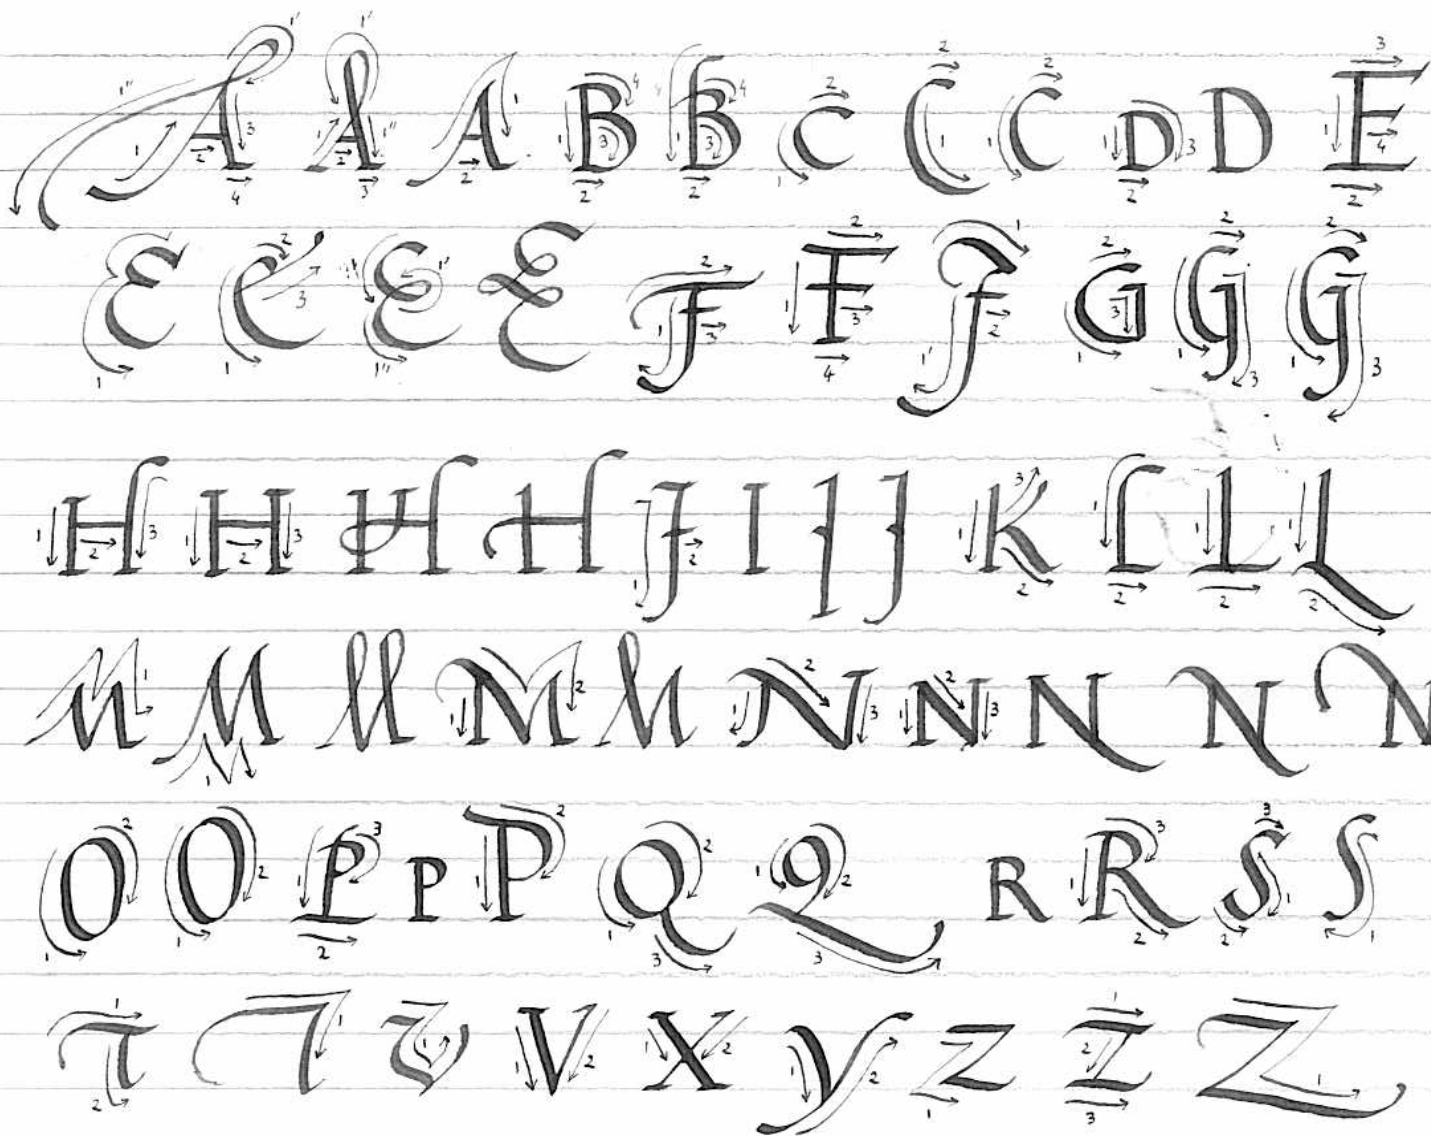 A A A B B C C C D D E
E E E E F F F G G G
H H H H J I J J K L L L
M M M M M N N N N N
O O P P P Q Q R R S S
T T V V X Y Z Z Z